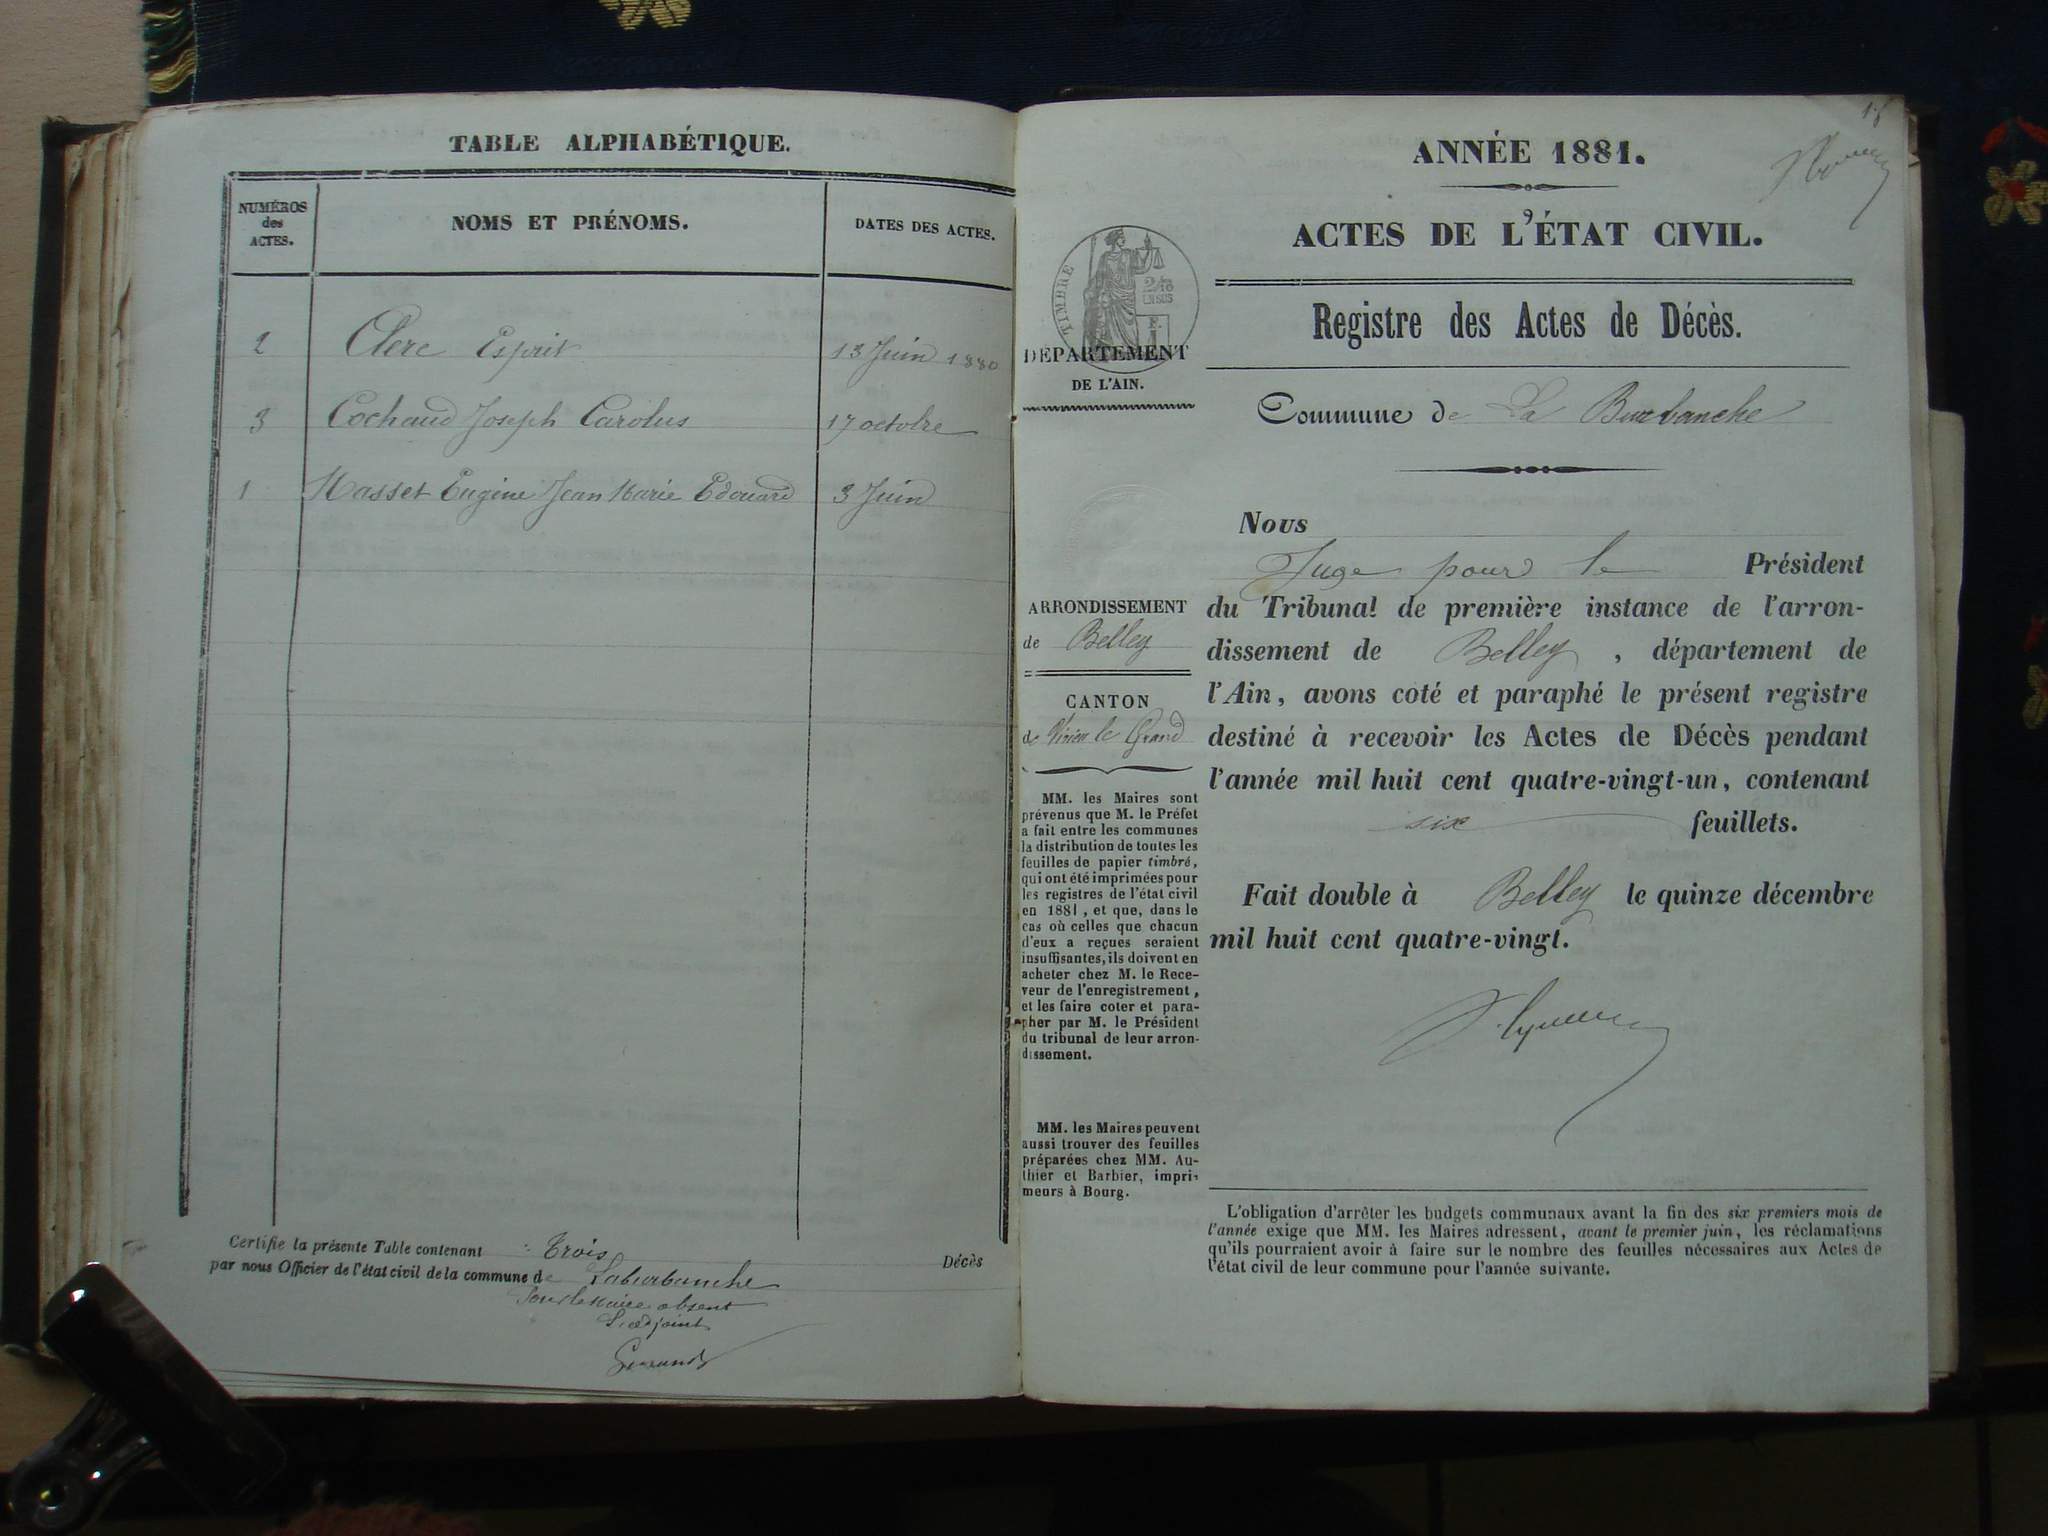 TABLE ALPHABÉTIQUE.
NUMÉROS
des
ACTES.
NOMS ET PRÉNOMS.
DATES DES ACTES.
2 Clerc Esprit 13 Juin 1880
3 Cochaud Joseph Carolus 17 octobre
1 Masset Eugène Jean Marie Edouard 3 Juin
Certifie la présente Table contenant : Trois Décès
par nous Officier de l'état civil de la commune de Laburbanche
Pour le Maire absent
L'adjoint
ANNÉE 1881.
ACTES DE L'ÉTAT CIVIL.
TIMBRE
2/10
EN SUS
DÉPARTEMENT
DE L'AIN.
ARRONDISSEMENT
de Belley
CANTON
de Virieu le Grand
MM. les Maires sont
prévenus que M. le Préfet
a fait entre les communes
la distribution de toutes les
feuilles de papier timbré,
qui ont été imprimées pour
les registres de l'état civil
en 1881, et que, dans le
cas où celles que chacun
d'eux a reçues seraient
insuffisantes, ils doivent en
acheter chez M. le Rece-
veur de l'enregistrement,
et les faire coter et para-
pher par M. le Président
du tribunal de leur arron-
dissement.
MM. les Maires peuvent
aussi trouver des feuilles
préparées chez MM. Au-
thier et Barbier, impri-
meurs à Bourg.
Registre des Actes de Décès.
Commune de La Burbanche
Nous
Juge pour le Président
du Tribunal de première instance de l'arron-
dissement de Belley, département de
l'Ain, avons coté et paraphé le présent registre
destiné à recevoir les Actes de Décès pendant
l'année mil huit cent quatre-vingt-un, contenant
six feuillets.
Fait double à Belley le quinze décembre
mil huit cent quatre-vingt.
L'obligation d'arrêter les budgets communaux avant la fin des six premiers mois de
l'année exige que MM. les Maires adressent, avant le premier juin, les réclamations
qu'ils pourraient avoir à faire sur le nombre des feuilles nécessaires aux Actes de
l'état civil de leur commune pour l'année suivante.